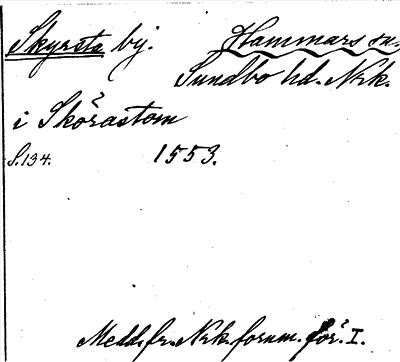 Skyrsta by. Hammars sn.
Sundbo hd. Nrk.
i Skörastom
S. 134. 1553.
Medd. fr. Nrk. fornm. för. I.